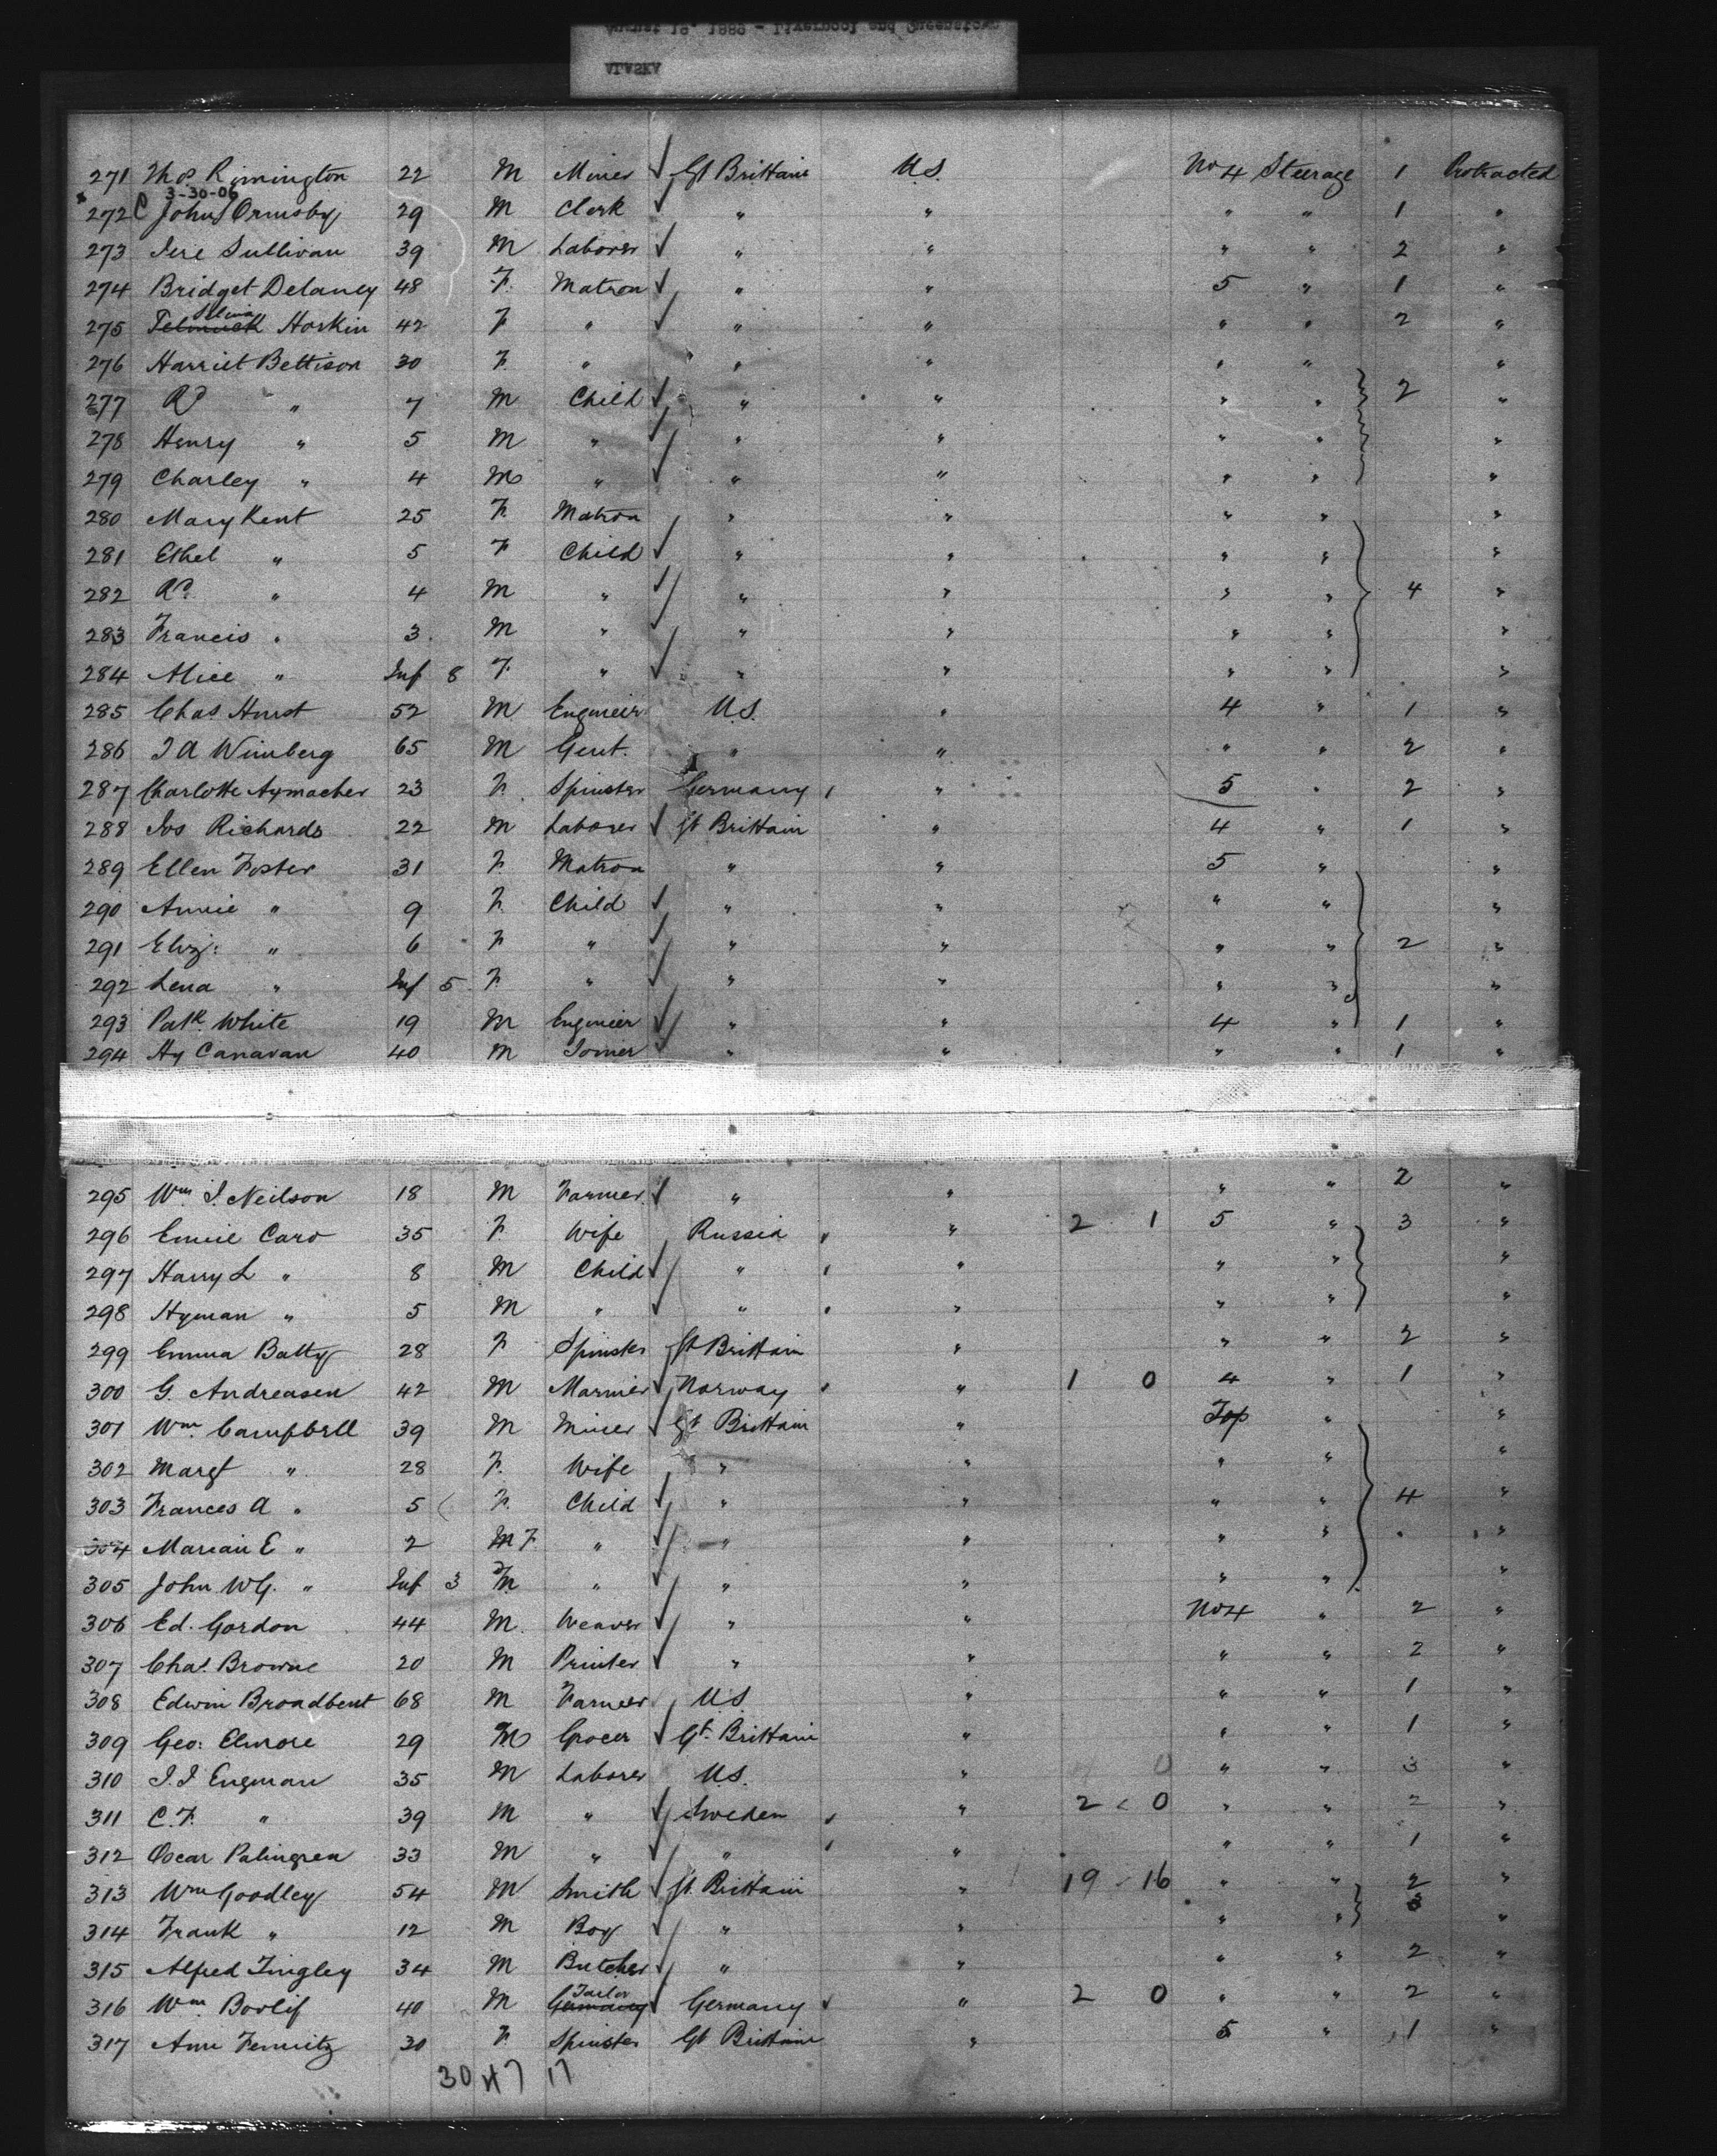 August 19" 1889 - Liverpool and Queenstown
ALASKA
271 Thos Rimington 22 M Miner ✓ Gt Brittain U.S. No 4 Steerage 1 Protracted
3-30-06
x 272 C John Ormsby 29 M Clerk ✓ " " " " 1 "
273 Jere Sullivan 39 M Laborer ✓ " " " " 2 "
274 Bridget Delaney 48 F. Matron ✓ " " 5 " 1 "
Selina
275 Hoskin 42 F " ✓ " " " " 2 "
276 Harriet Bettison 30 F. " " " " " "
277 Rd " 7 M Child ✓ " " " " 2 "
278 Henry " 5 M " ✓ " " " " "
279 Charley " 4 M " ✓ " " " " "
280 Mary Kent 25 F. Matron " " " " "
281 Ethel " 5 F Child ✓ " " " " "
282 Rd. " 4 M " ✓ " " " " 4 "
283 Francis " 3. M " ✓ " " " " "
284 Alice " Inf 8 F. " ✓ " " " " "
285 Chas Hurst 52 M Engineer U.S. " 4 " 1 "
286 J A Wimberg 65 M Gent. " " " " 2 "
287 Charlotte Aymacher 23 F. Spinster Germany " 5 " 2 "
288 Jos Richards 22 M Laborer ✓ Gt Brittain " 4 " 1 "
289 Ellen Foster 31 F. Matron " " 5 " "
290 Annie " 9 F. Child ✓ " " " " "
291 Eliz: " 6 F " ✓ " " " " 2 "
292 Lena " Inf 5 F. " ✓ " " " " "
293 Patk. White 19 M Engineer ✓ " " 4 " 1 "
294 Hy Canavan 40 M Joiner ✓ " " " " 1 "
295 Wm. J. Neilson 18 M Farmer ✓ " " " " 2 "
296 Emile Caro 35 F. Wife Russia " 2 1 5 " 3 "
297 Harry L " 8 M Child ✓ " " " " "
298 Hyman " 5 M " ✓ " " " " "
299 Emma Batty 28 F Spinster Gt Brittain " " " 2 "
300 G. Andreasen 42 M Mariner ✓ Norway " 1 0 4 " 1 "
301 Wm. Campbell 39 M Miner ✓ Gt Brittain " Top " "
302 Margt " 28 F. Wife " " " " "
303 Frances A " 5 F. Child ✓ " " " " 4 "
304 Marian E " 2 M F. " ✓ " " " " "
305 John WG. " Inf 3 M. " ✓ " " " " "
306 Ed. Gordon 44 M. Weaver ✓ " " No 4 " 2 "
307 Chas. Browne 20 M Printer ✓ " " " " 2 "
308 Edwin Broadbent 68 M Farmer U.S " " " 1 "
309 Geo: Elmore 29 M Grocer ✓ Gt. Brittain " " " 1 "
310 J.J Engman 35 M Laborer U.S. " 0 " " 3 "
311 C.F. " 39 M " ✓ Sweden " 2 0 " " 2 "
312 Oscar Palmgren 33 M " ✓ " " " " 1 "
313 Wm Goodley 54 M Smith ✓ Gt. Brittain " 19 - 16 " " 2 "
314 Frank " 12 M Boy ✓ " " " " 3 "
315 Alfred Tingley 34 M Butcher ✓ " " " " 2 "
Tailor
316 Wm. Borlif 40 M Germany ✓ Germany " 2 0 " " 2 "
317 Ann Fennitz 30 F. Spinster Gt Brittain " 5 " 1 "
30 47 17